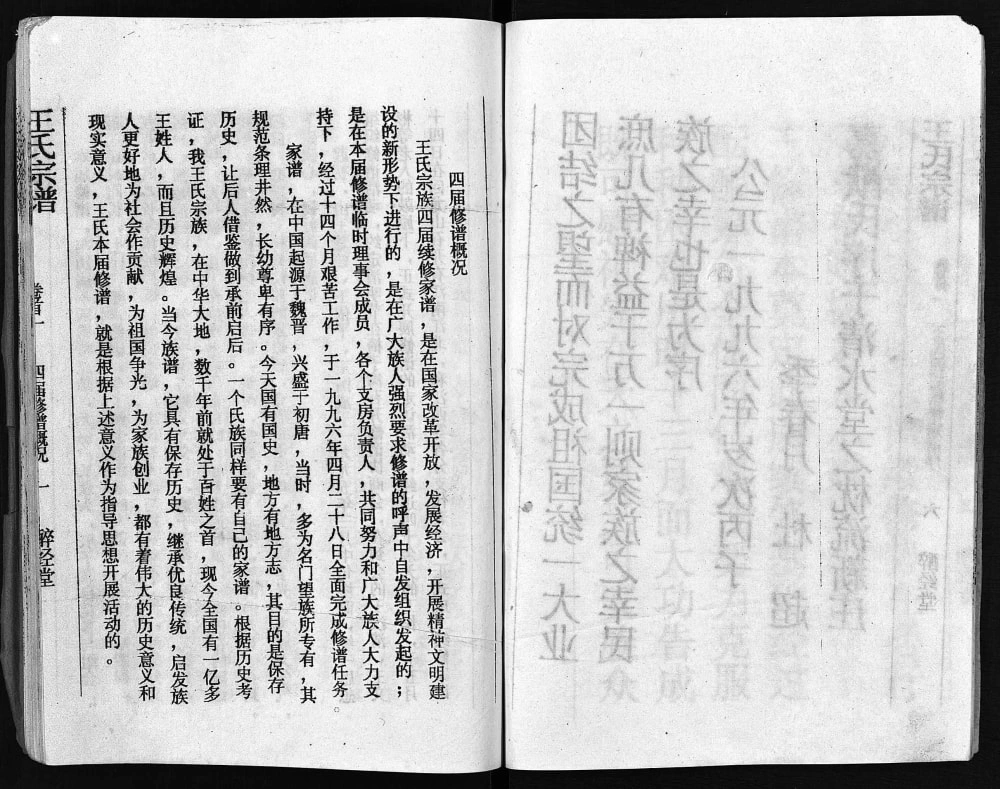 团结之望而对完成祖国统一大业
庶几有裨益于万一则家族之幸民
族之幸也是为序
公元一九九六年岁次丙子
季春月 杜 超
清水堂之枕流新宇
王氏宗谱
六
醉经堂
四届修谱概况
王氏宗族四届续修家谱，是在国家改革开放，发展经济，开展精神文明建
设的新形势下进行的，是在广大族人强烈要求修谱的呼声中自发组织发起的；
是在本届修谱临时理事会成员，各个支房负责人，共同努力和广大族人大力支
持下，经过十四个月艰苦工作，于一九九六年四月二十八日全面完成修谱任务。
家谱，在中国起源于魏晋，兴盛于初唐，当时，多为名门望族所专有，其
规范条理井然，长幼尊卑有序。今天国有国史，地方有地方志，其目的是保存
历史，让后人借鉴做到承前启后。一个氏族同样要有自己的家谱。根据历史考
证，我王氏宗族，在中华大地，数千年前就处于百姓之首，现今全国有一亿多
王姓人，而且历史辉煌。当今族谱，它具有保存历史，继承优良传统，启发族
人更好地为社会作贡献，为祖国争光，为家族创业，都有着伟大的历史意义和
现实意义，王氏本届修谱，就是根据上述意义作为指导思想开展活动的。
王氏宗谱
卷首一
四届修谱概况
一
醉经堂